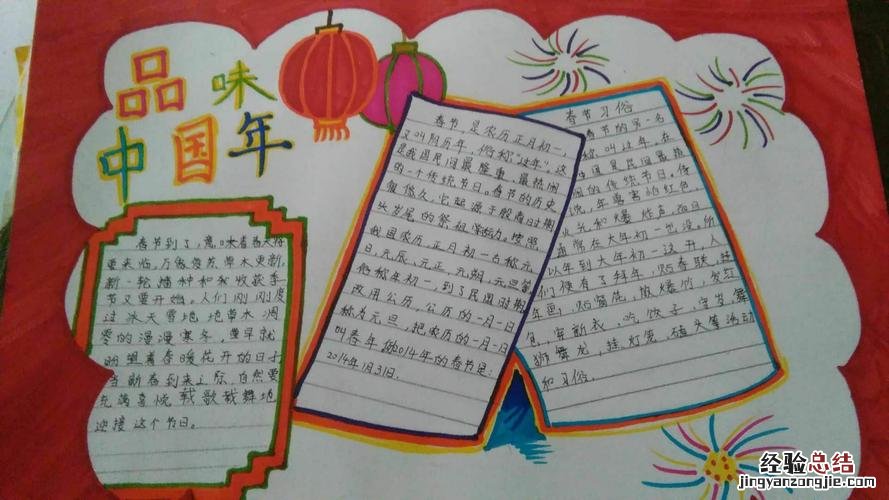 品味
中国年
春节到了，意味着春天将
要来临，万象复苏草木更新，
新一轮播种和收获季
节又要开始。人们刚刚度
过冰天雪地草木凋
零的漫漫寒冬，早就
盼望着春暖花开的日子
当新春到来之际，自然要
充满喜悦载歌载舞地
迎接这个节日。
春节，是农历正月初一，
又叫阴历年，俗称"过年"，这
是我国民间最隆重、最热闹
的一个传统节日。春节的历史
很悠久，它起源于殷商时期
年头岁尾的祭祖活动。按照
我国农历，正月初一古称元
日，元辰、元正、元朔，元旦等
俗称年初一，到了民国时期
改用公历，公历的一月一日
称为元旦，把农历的一月一日
叫春年 2014年的春节是：
2014年1月31日.
春节习俗
春节的另一名
称叫过年，在
中国民间最热
闹的传统节日。传
说，年害怕红色、
火光和爆炸声，而且
通常在大年初一出没。所
以年到大年初一这开，人
们便有了拜年，贴春联，挂
年画，贴窗花，放爆竹，发红
包，穿新衣、吃饺子，守岁，舞
狮舞龙，挂灯笼，磕头等活动
和习俗。
经验总结
jingyanzongjie.com